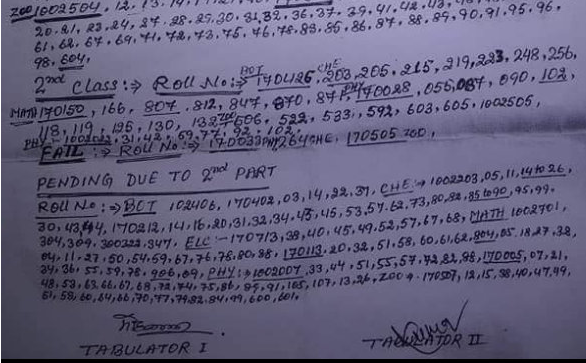 ZOO 1002504, 12, 13, 14,
20, 21, 23, 24, 27, 28, 29, 30, 31, 32, 36, 37, 39, 41, 42, 43,
61, 62, 67, 69, 71, 72, 73, 75, 76, 78, 83, 85, 86, 87, 88, 89, 90, 91, 95, 96,
98, 604,
2nd Class :⇒ Roll No :⇒ BOT 170426, CHE 203, 205, 215, 219, 223, 248, 256,
MATH 170150, 166, 807, 812, 847, 870, 871, PHY 170028, 056, 087, 090, 102,
118, 119, 125, 130, 132, ZOO 506, 522, 533, 592, 603, 605, 1002505,
PHY 1002022, 31, 42, 69, 77, 92, 102,
FAIL :⇒ Roll No :⇒ 170033 PHY, 264 CHE, 170505 ZOO,
PENDING DUE TO 2nd PART
Roll No :⇒ BOT 102406, 170402, 03, 14, 22, 37, CHE :⇒ 1002203, 05, 11, 14 to 26,
30, 43, 44, 170212, 14, 16, 20, 31, 32, 34, 43, 45, 53, 57, 62, 73, 80, 82, 85 to 90, 95, 99,
304, 309, 300322, 347, ELC :- 170713, 38, 40, 45, 49, 52, 57, 67, 68, MATH 1002701,
04, 11, 27, 50, 54, 59, 67, 76, 78, 80, 88, 170113, 20, 32, 51, 58, 60, 61, 62, 804, 05, 18, 27, 38,
34, 36, 55, 59, 78, 906, 09, PHY :⇒ 1002007, 33, 44, 51, 55, 57, 72, 82, 98, 170005, 07, 21,
48, 53, 63, 66, 67, 68, 72, 74, 75, 86, 89, 91, 105, 107, 13, 26, ZOO ⇒ 170507, 12, 15, 38, 40, 47, 49,
51, 58, 60, 64, 66, 70, 77, 79, 82, 84, 99, 600, 601.
TABULATOR I TABULATOR II